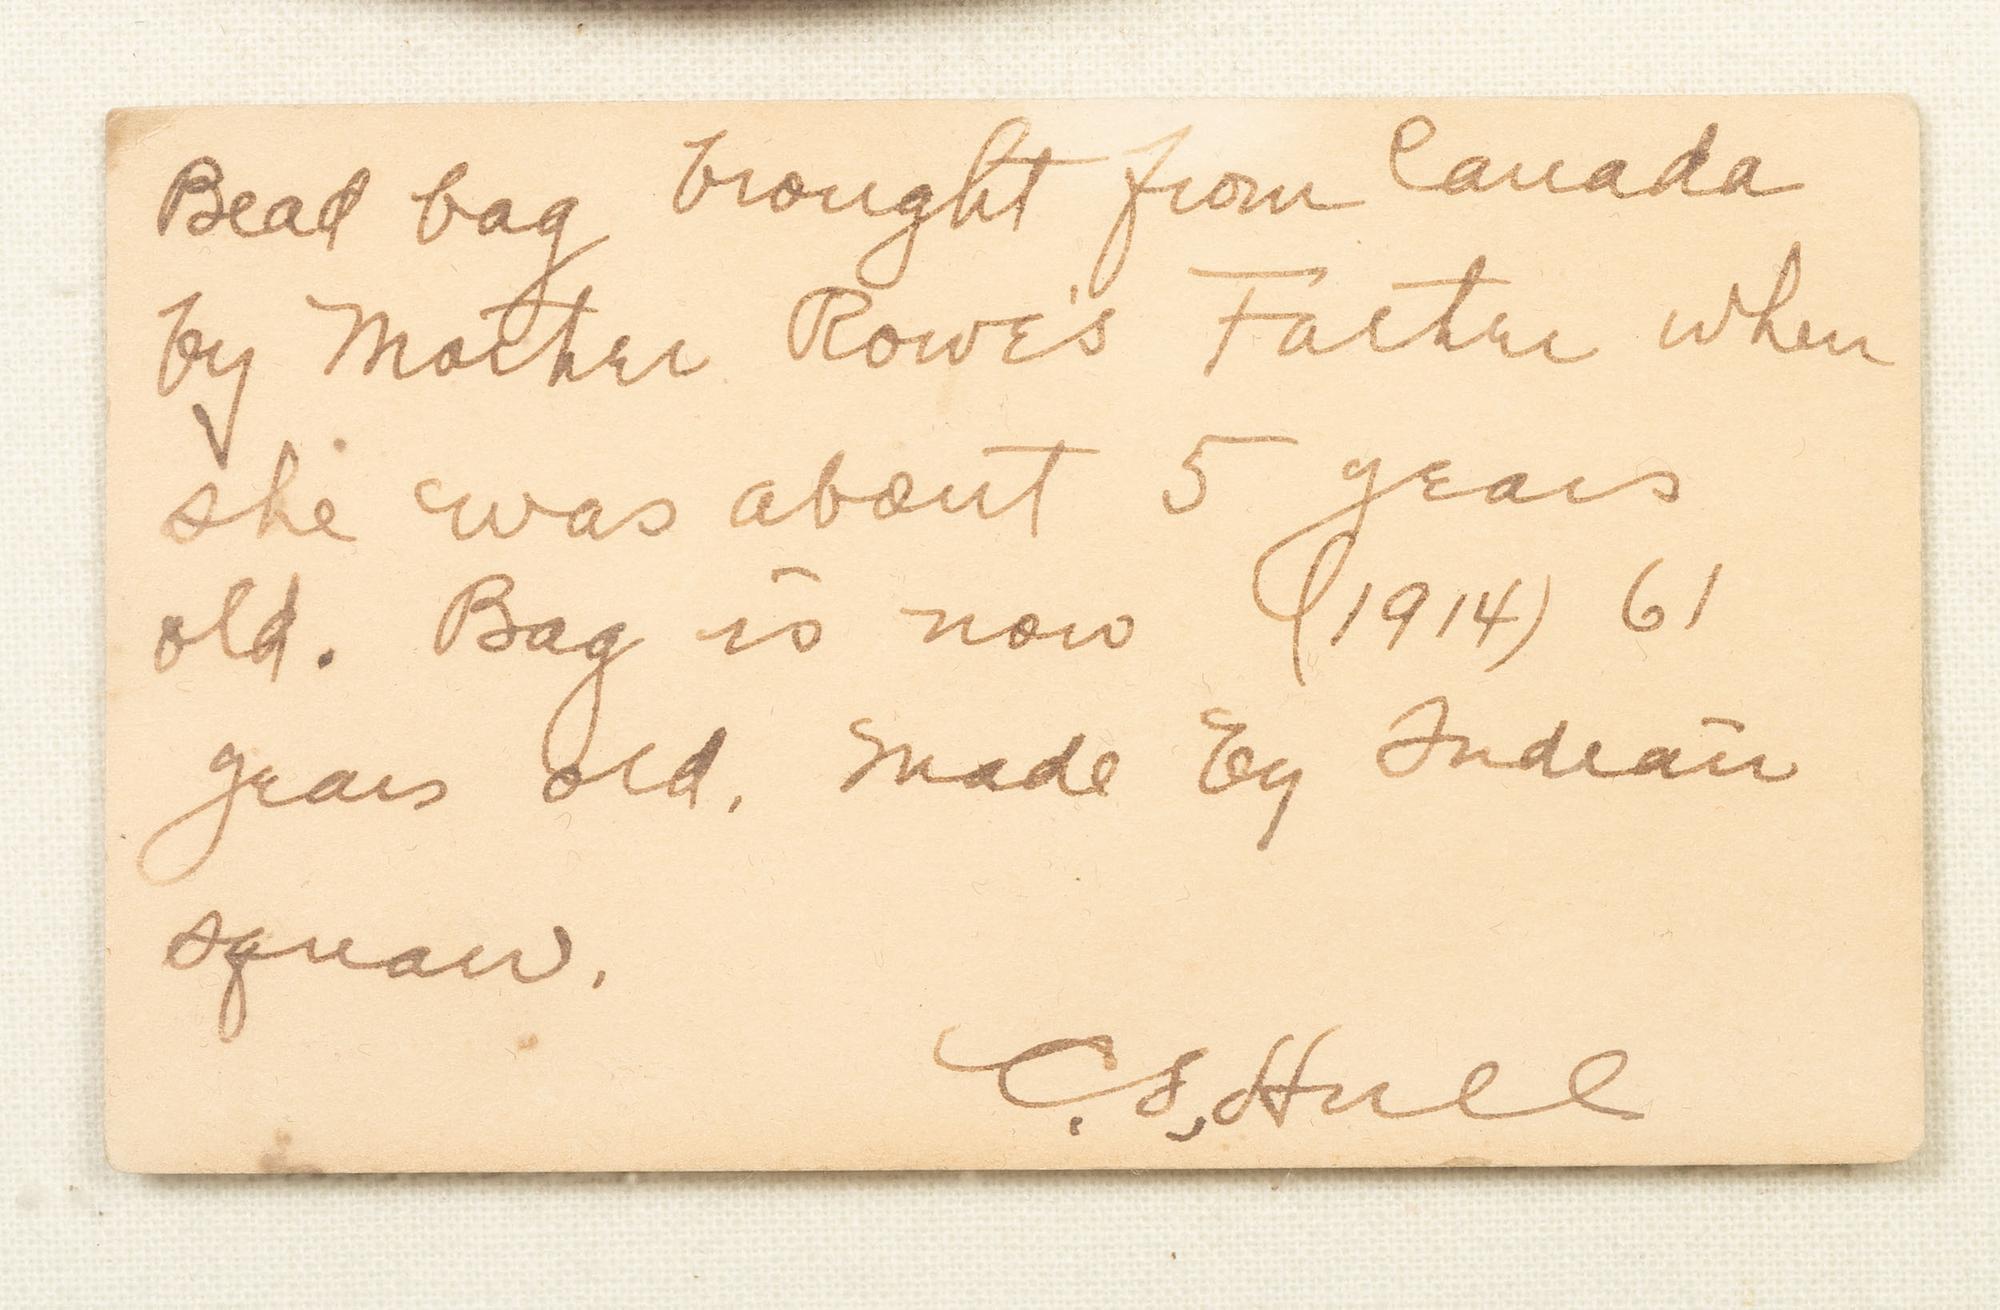 Bead bag brought from Canada
by Mother Rowe's Father when
she was about 5 years
old. Bag is now (1914) 61
years old. Made By Indian
squaw.
C. S. Hull